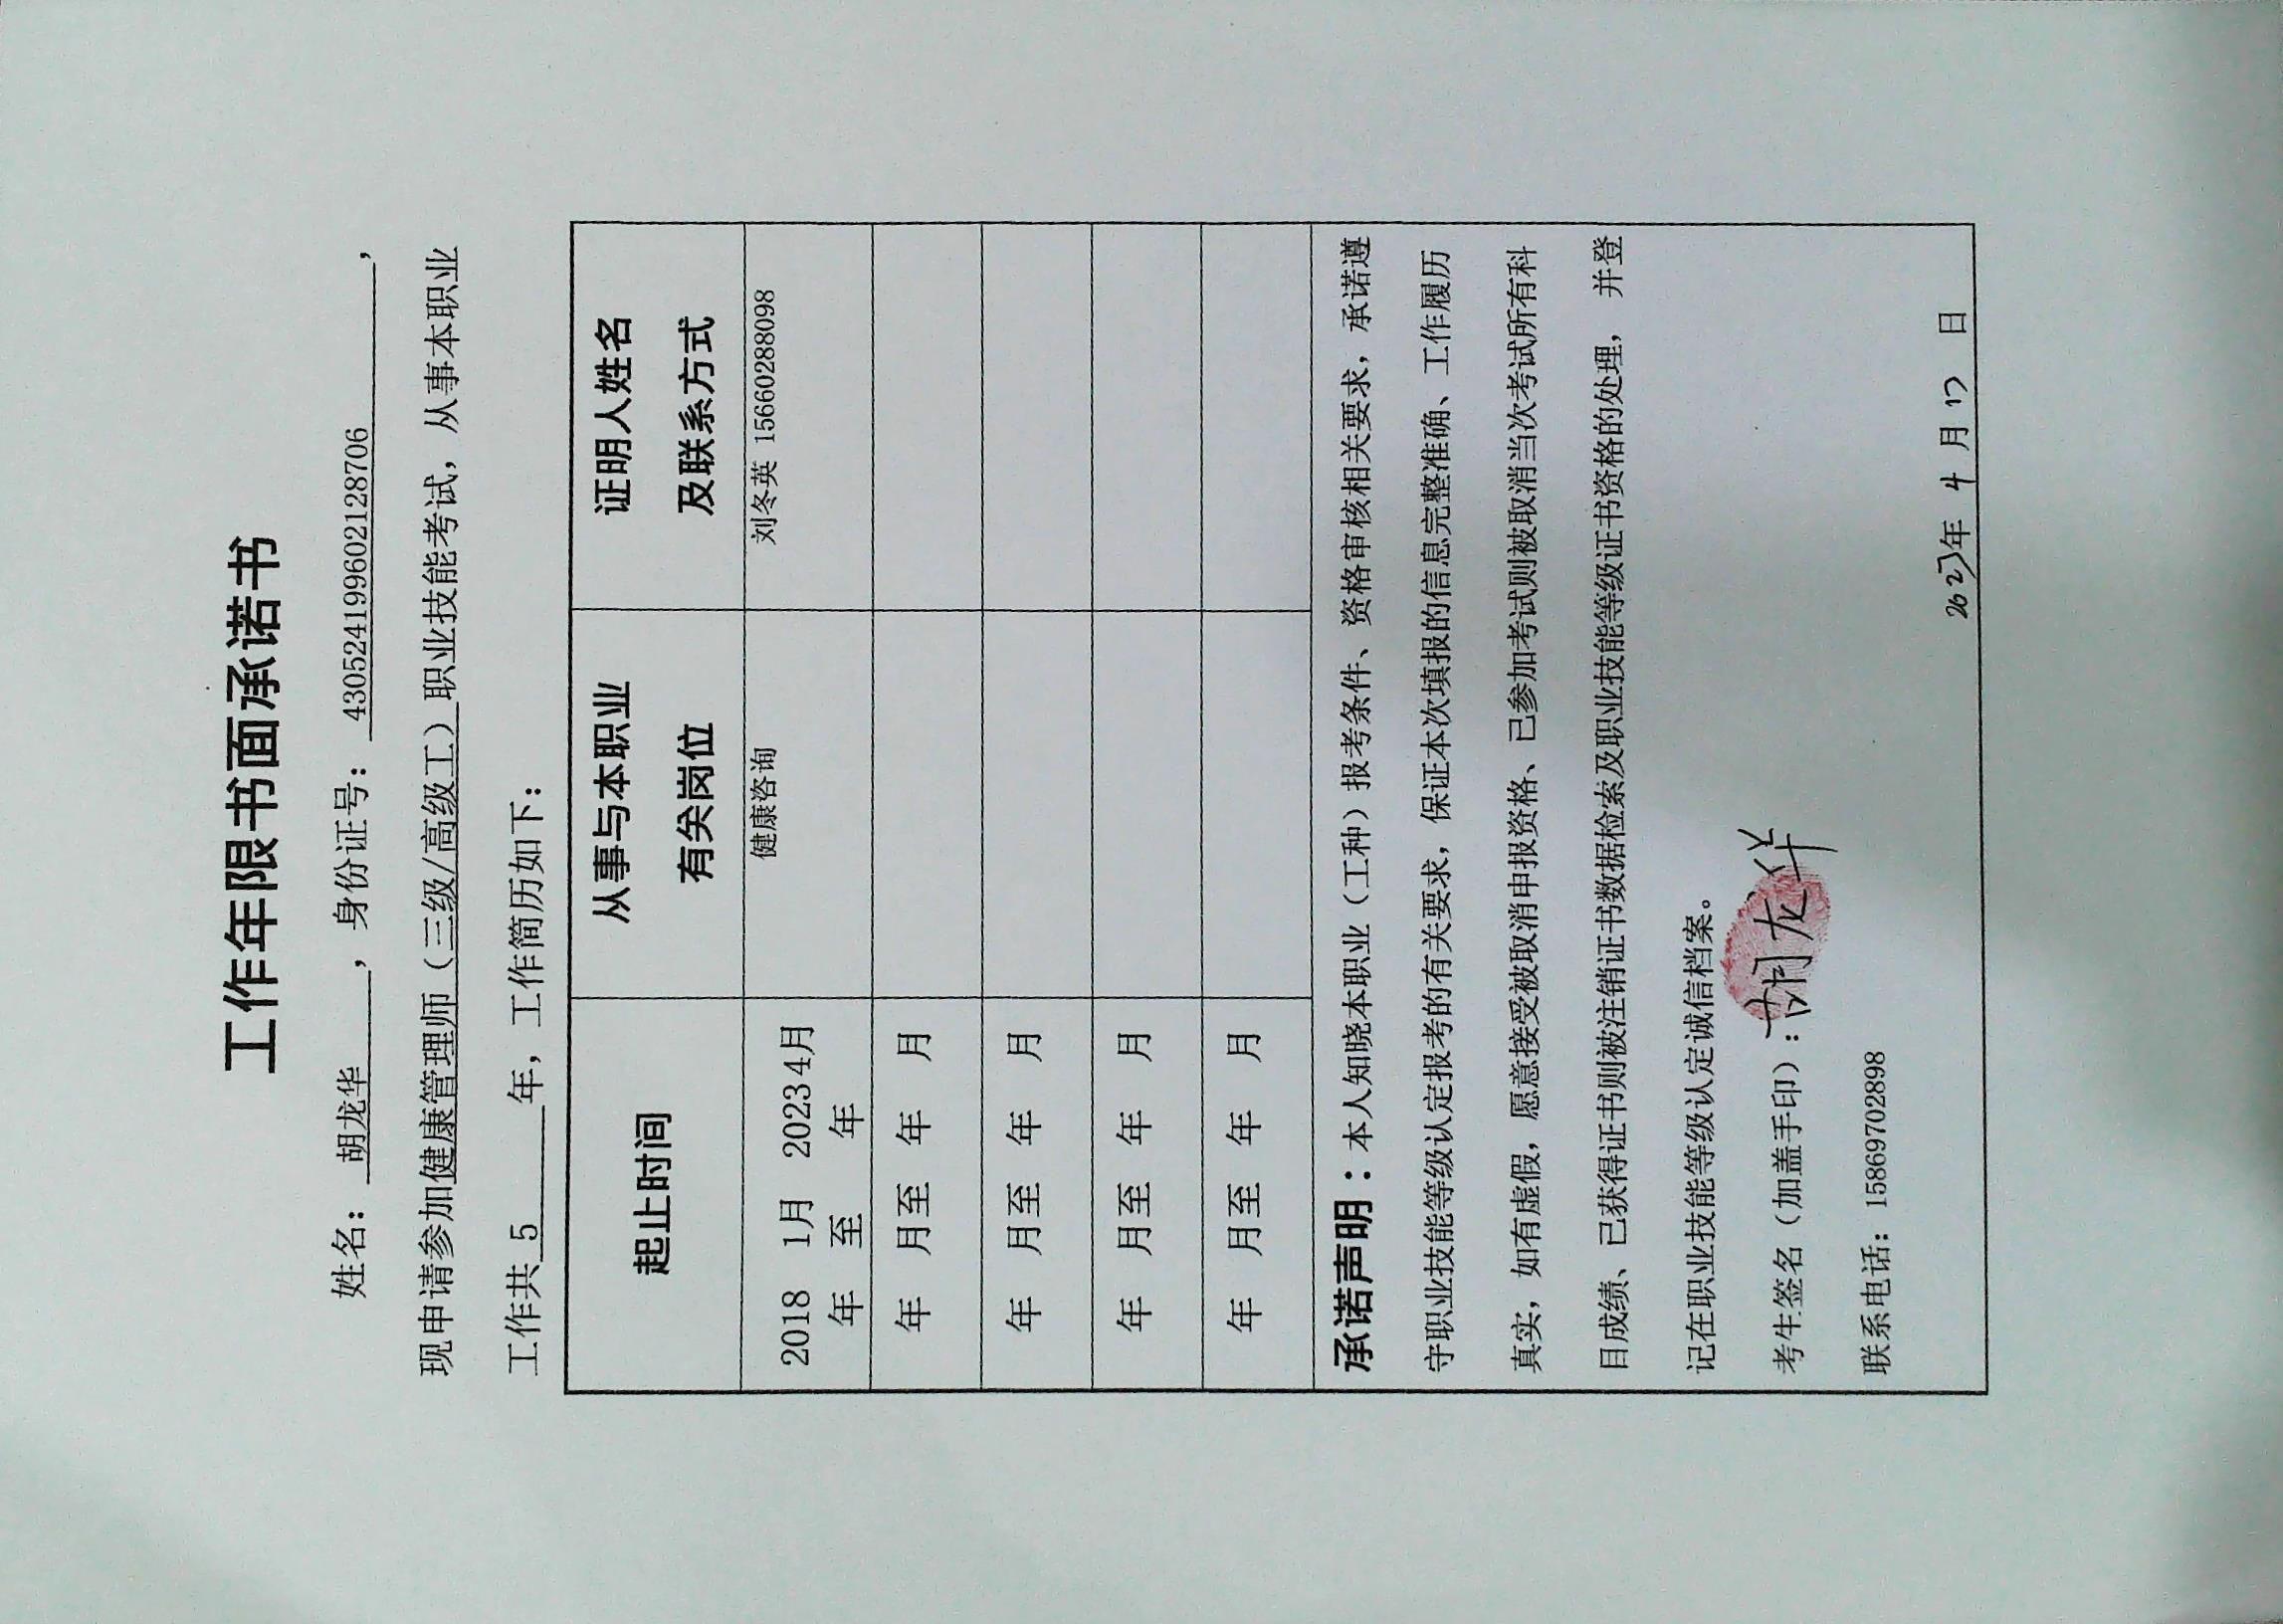 工作年限书面承诺书
姓名：胡龙华，身份证号：430524199602128706，
现申请参加健康管理师（三级/高级工）职业技能考试，从事本职业
工作共 5 年，工作简历如下：
起止时间 从事与本职业有关岗位 证明人姓名及联系方式
2018年 1月至 2023年4月 健康咨询 刘冬英 15660288098
年 月至 年 月
年 月至 年 月
年 月至 年 月
年 月至 年 月
承诺声明：本人知晓本职业（工种）报考条件、资格审核相关要求，承诺遵
守职业技能等级认定报考的有关要求，保证本次填报的信息完整准确、工作履历
真实，如有虚假，愿意接受被取消申报资格、已参加考试则被取消当次考试所有科
目成绩、已获得证书则被注销证书数据检索及职业技能等级证书资格的处理，并登
记在职业技能等级认定诚信档案。
考生签名（加盖手印）：胡龙华
联系电话：15869702898
2023年 4 月 17 日